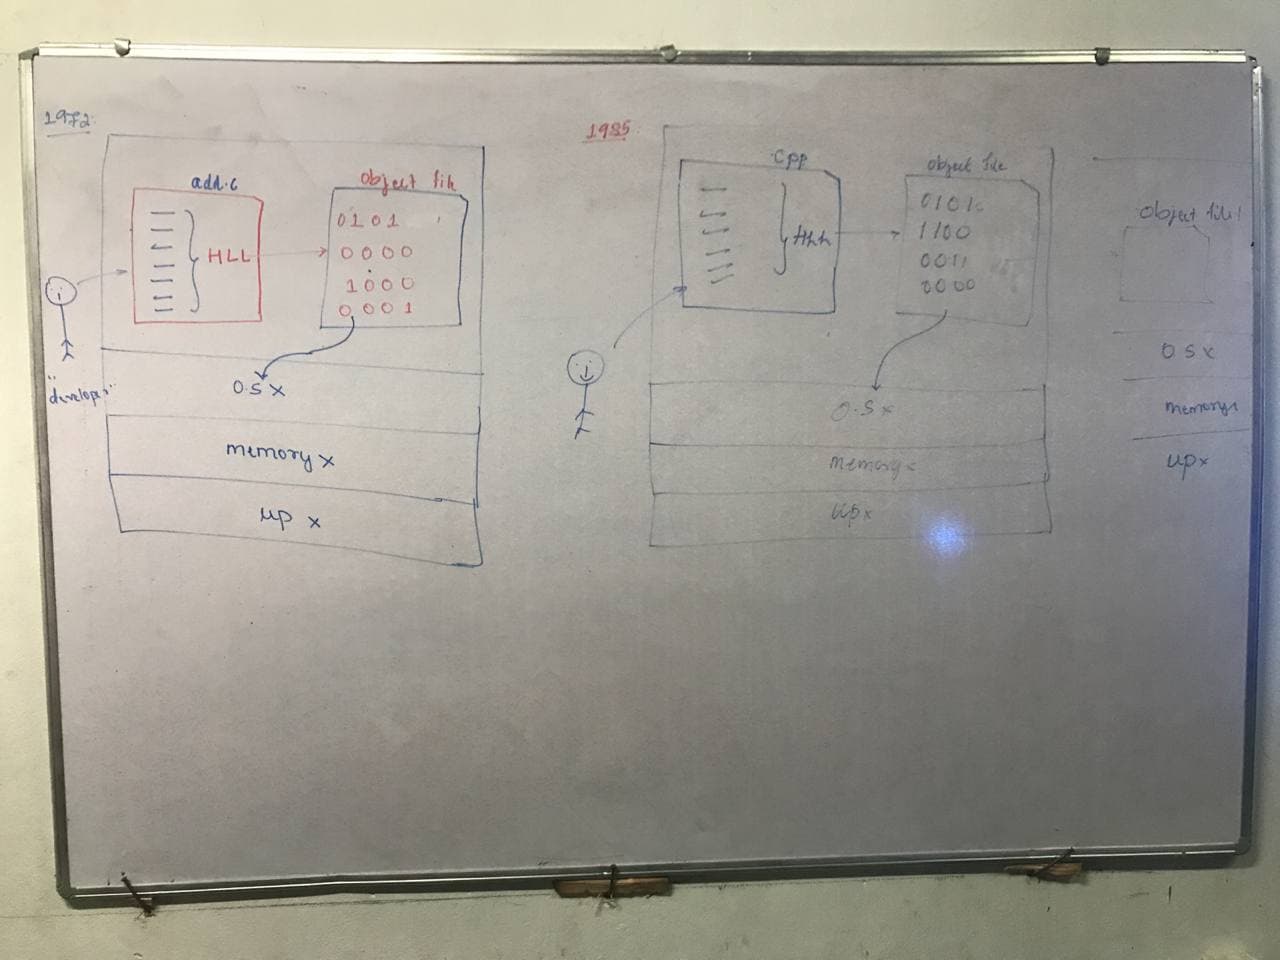 1972
add.c
object file
HLL
0101
0000
1000
0001
"developer"
0.S x
memory x
up x
1985
cpp
object file
HLL
0101
1100
0011
0000
0.S x
memory x
up x
object file
0 S x
memory x
up x